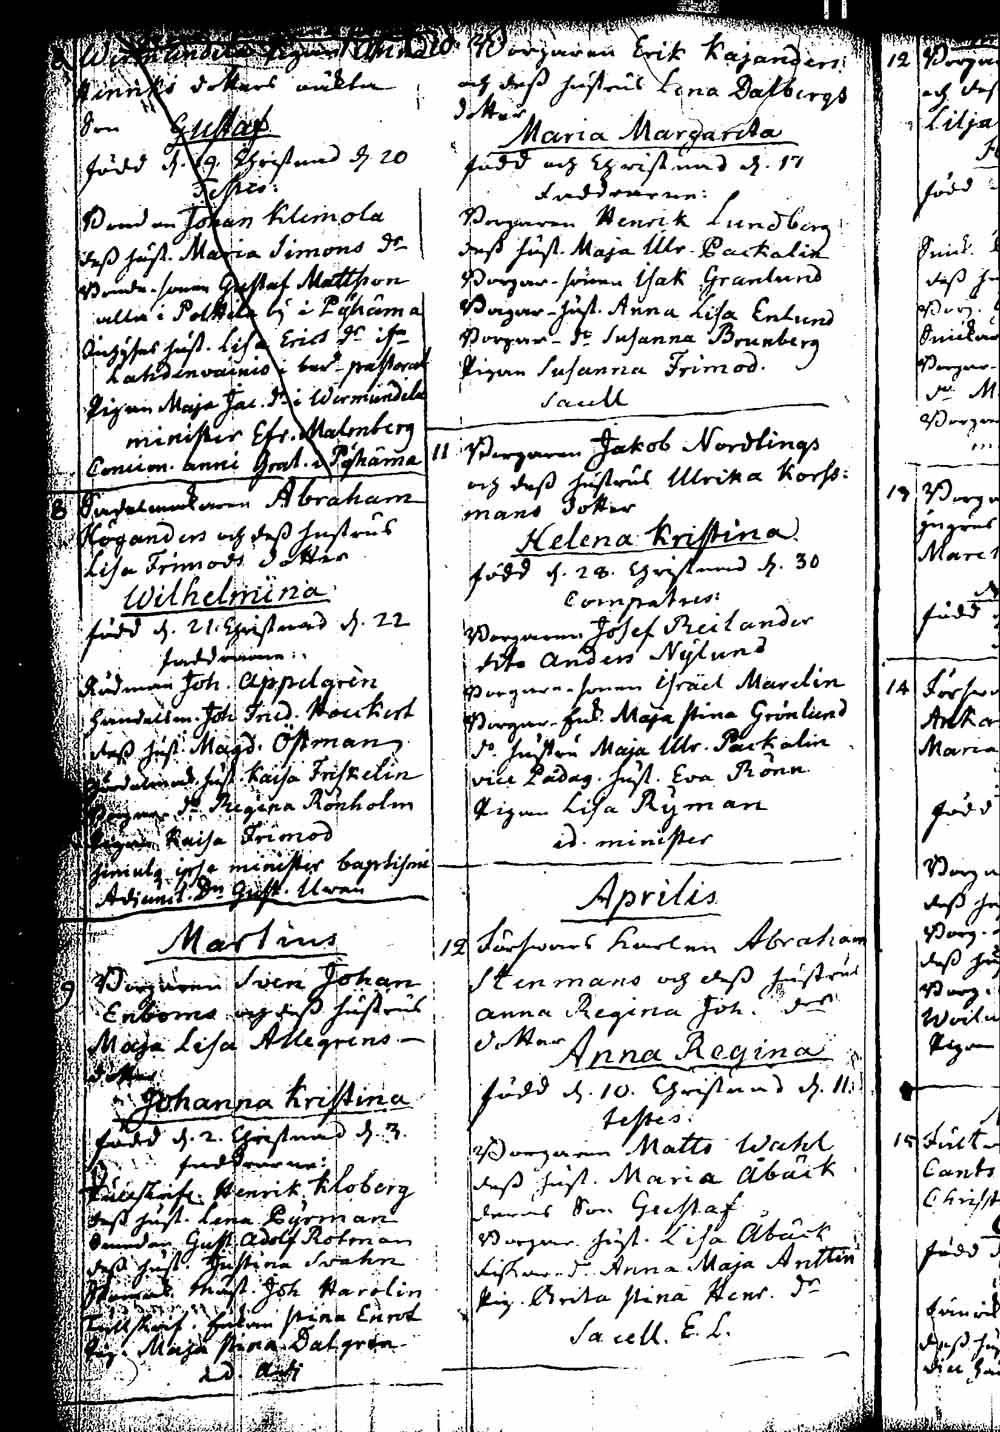 Henriks dotters oäkta
Son Gustaf
född d. 19. Christnad d. 20
Testes:
Bonden Johan Klemola
dess hust. Maria Simons dr
Bonde-sonen Gustaf Mattsson
alla i Polttila by i Pyhäma
hust. Lisa Erics dr
Lahdenvainio
Pigan Maja Jac. dr i Wermundila
minister Efr. Malmberg
Concion. anni Grat. i Pyhäma
8 Sadelmakaren Abraham
Köganders och dess hustrus
Lisa Frimods dotter
Wilhelmina
född d. 21. Christnad d. 22
faddrarne:
Rådman Joh. Appelgrèn
Handelsm. Joh. Fred. Hockert
dess hust. Magd. Östman
hust. Kaisa Friskelin
Borgare dr Regina Rönholm
Pigan Kaisa Frimod
simulq ipse minister baptismi
Adjunct. Dn Gust. Uran
Martius
9 Borgaren Sven Johan
Enboms och dess hustrus
Maja Lisa Allegrens
dotter
Johanna Kristina
född d. 2. Christnad d. 3.
faddrarne:
Tullskrif. Henrik Kloberg
dess hust. Lena Byrman
Gust. Adolf Rotman
dess hust. Justina Svahn
Joh Harolin
Tullskrif. Stina Enrot
Pig. Maja Stina Dalgren
10. Borgaren Erik Kajanders
och dess hustrus Lena Dalbergs
dotter
Maria Margareta
född och Christnad d. 17
Faddrarne:
Borgaren Henrik Lundberg
dess hust. Maja Ulr. Packalin
Borgar-sonen Isak Granlund
Borgar-hust. Anna Lisa Enlund
Borgar-dr Susanna Brunberg
Pigan Susanna Frimod.
Sacell
11 Borgaren Jakob Nordlings
och dess hustrus Ulrika Korss:
mans dotter
Helena Kristina
född d. 28. Christnad d. 30
Compatres:
Borgaren Josef Reilander
dito Anders Nylund
Borgare-sonen Israel Marelin
Borgar-enk. Maja Stina Grönlund
do hustru Maja Ulr. Packalin
vice Pädag. hust. Eva Rönn
Pigan Lisa Ryman
id. minister
Aprilis
12 Försvars karlen Abraham
Stenmans och dess hustrus
Anna Regina Joh. drs
dotter
Anna Regina
född d. 10. Christnad d. 11.
testes:
Borgaren Matts Wahl
dess hust. Maria Åbäck
deras Son Gustaf
Borgar. hust. Lisa Åbäck
Fiskar-dr. Anna Maja Anttin
Pig. Brita Stina Henr. dr
Sacell. E. L.
12 Borgar
och dess
Lilja
född
dess
Borg.
Borgar-
dr M
Borgar
13 Borga
Marel
född
14 Försv
Anka
Maria
född
Borga
dess
Borg.
dess hu
Borg.
Pigan
15
Cants
Christ
född